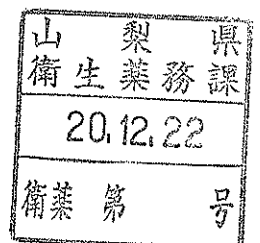 山梨県
衛生薬務課
20.12.22
衛薬 第 号